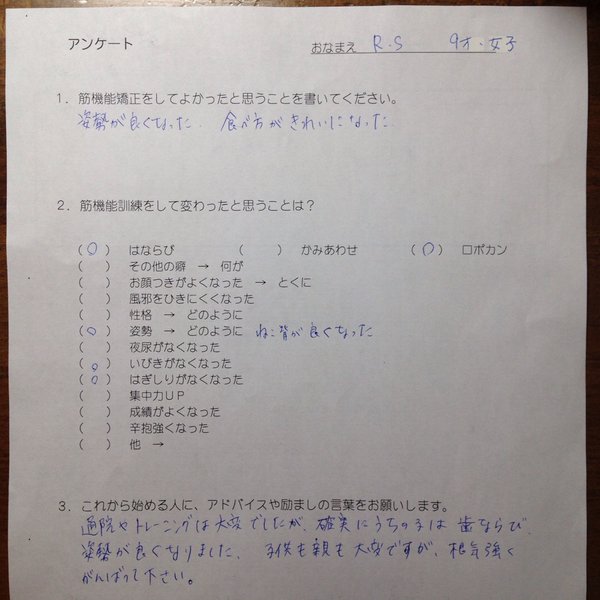 アンケート
おなまえ R.S 9才・女子
1．筋機能矯正をしてよかったと思うことを書いてください。
姿勢が良くなった 食べ方がきれいになった
2．筋機能訓練をして変わったと思うことは？
（○） はならび （ ） かみあわせ （○） ロポカン
（ ） その他の癖 → 何が
（ ） お顔つきがよくなった → とくに
（ ）風邪をひきにくくなった
（ ）性格 → どのように
（○） 姿勢 → どのように ねこ背が良くなった
（ ） 夜尿がなくなった
（○） いびきがなくなった
（○） はぎしりがなくなった
（ ） 集中力ＵＰ
（ ） 成績がよくなった
（ ） 辛抱強くなった
（ ） 他 →
3．これから始める人に、アドバイスや励ましの言葉をお願いします。
通院やトレーニングは大変でしたが、確実にうちの子は歯ならび、
姿勢が良くなりました、子供も親も大変ですが、根気強く
がんばって下さい。